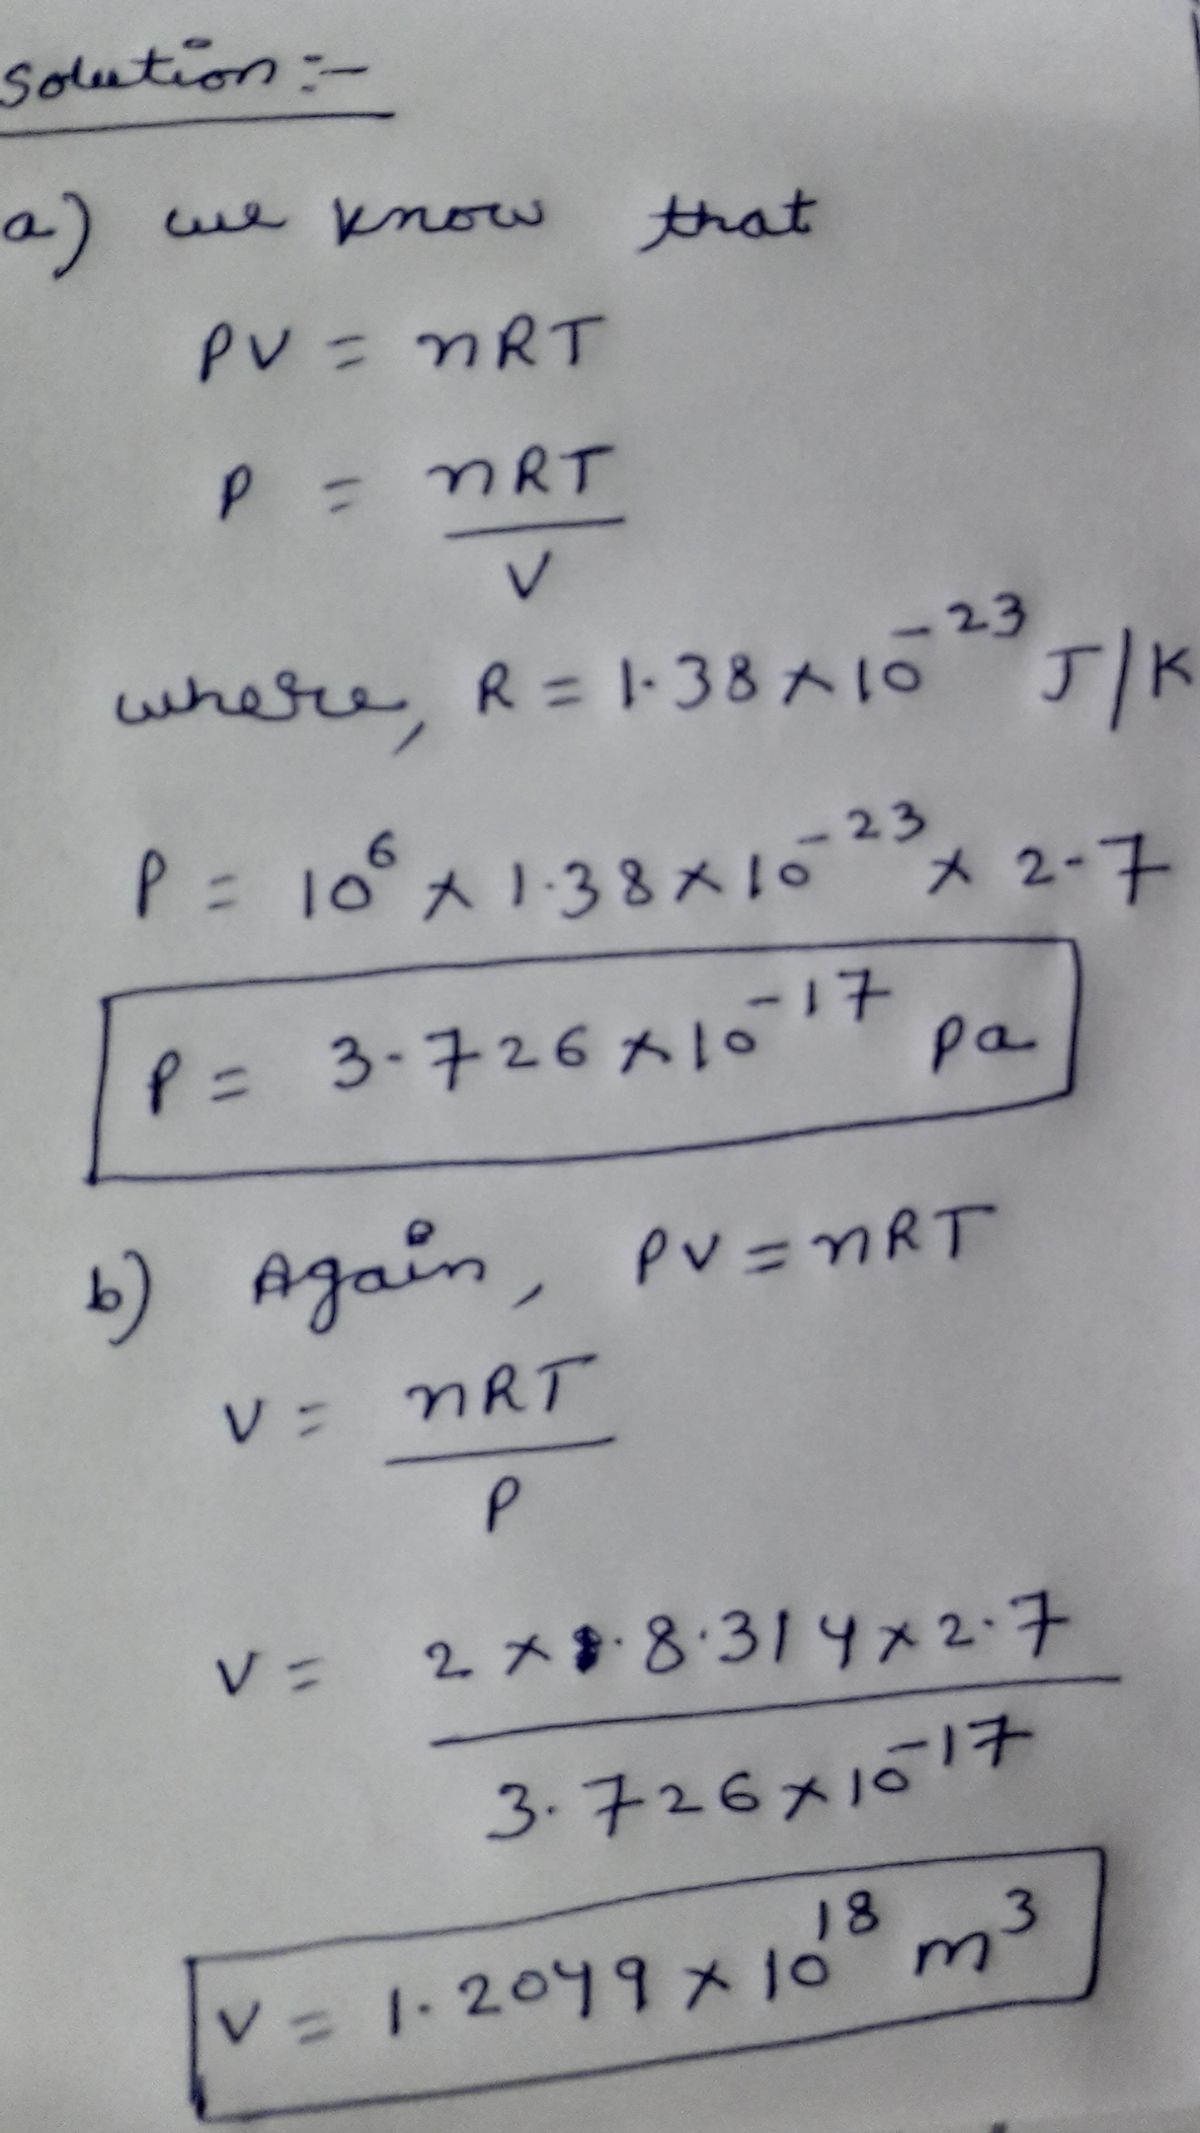 Solution :-
a) we know that
PV = nRT
P = nRT
V
where, R = 1.38 × 10⁻²³ J/K
P = 10⁶ × 1.38 × 10⁻²³ × 2.7
P = 3.726 × 10⁻¹⁷ pa
b) Again, PV = nRT
V = nRT
P
V = 2 × 8.314 × 2.7
3.726 × 10⁻¹⁷
V = 1.2049 × 10¹⁸ m³